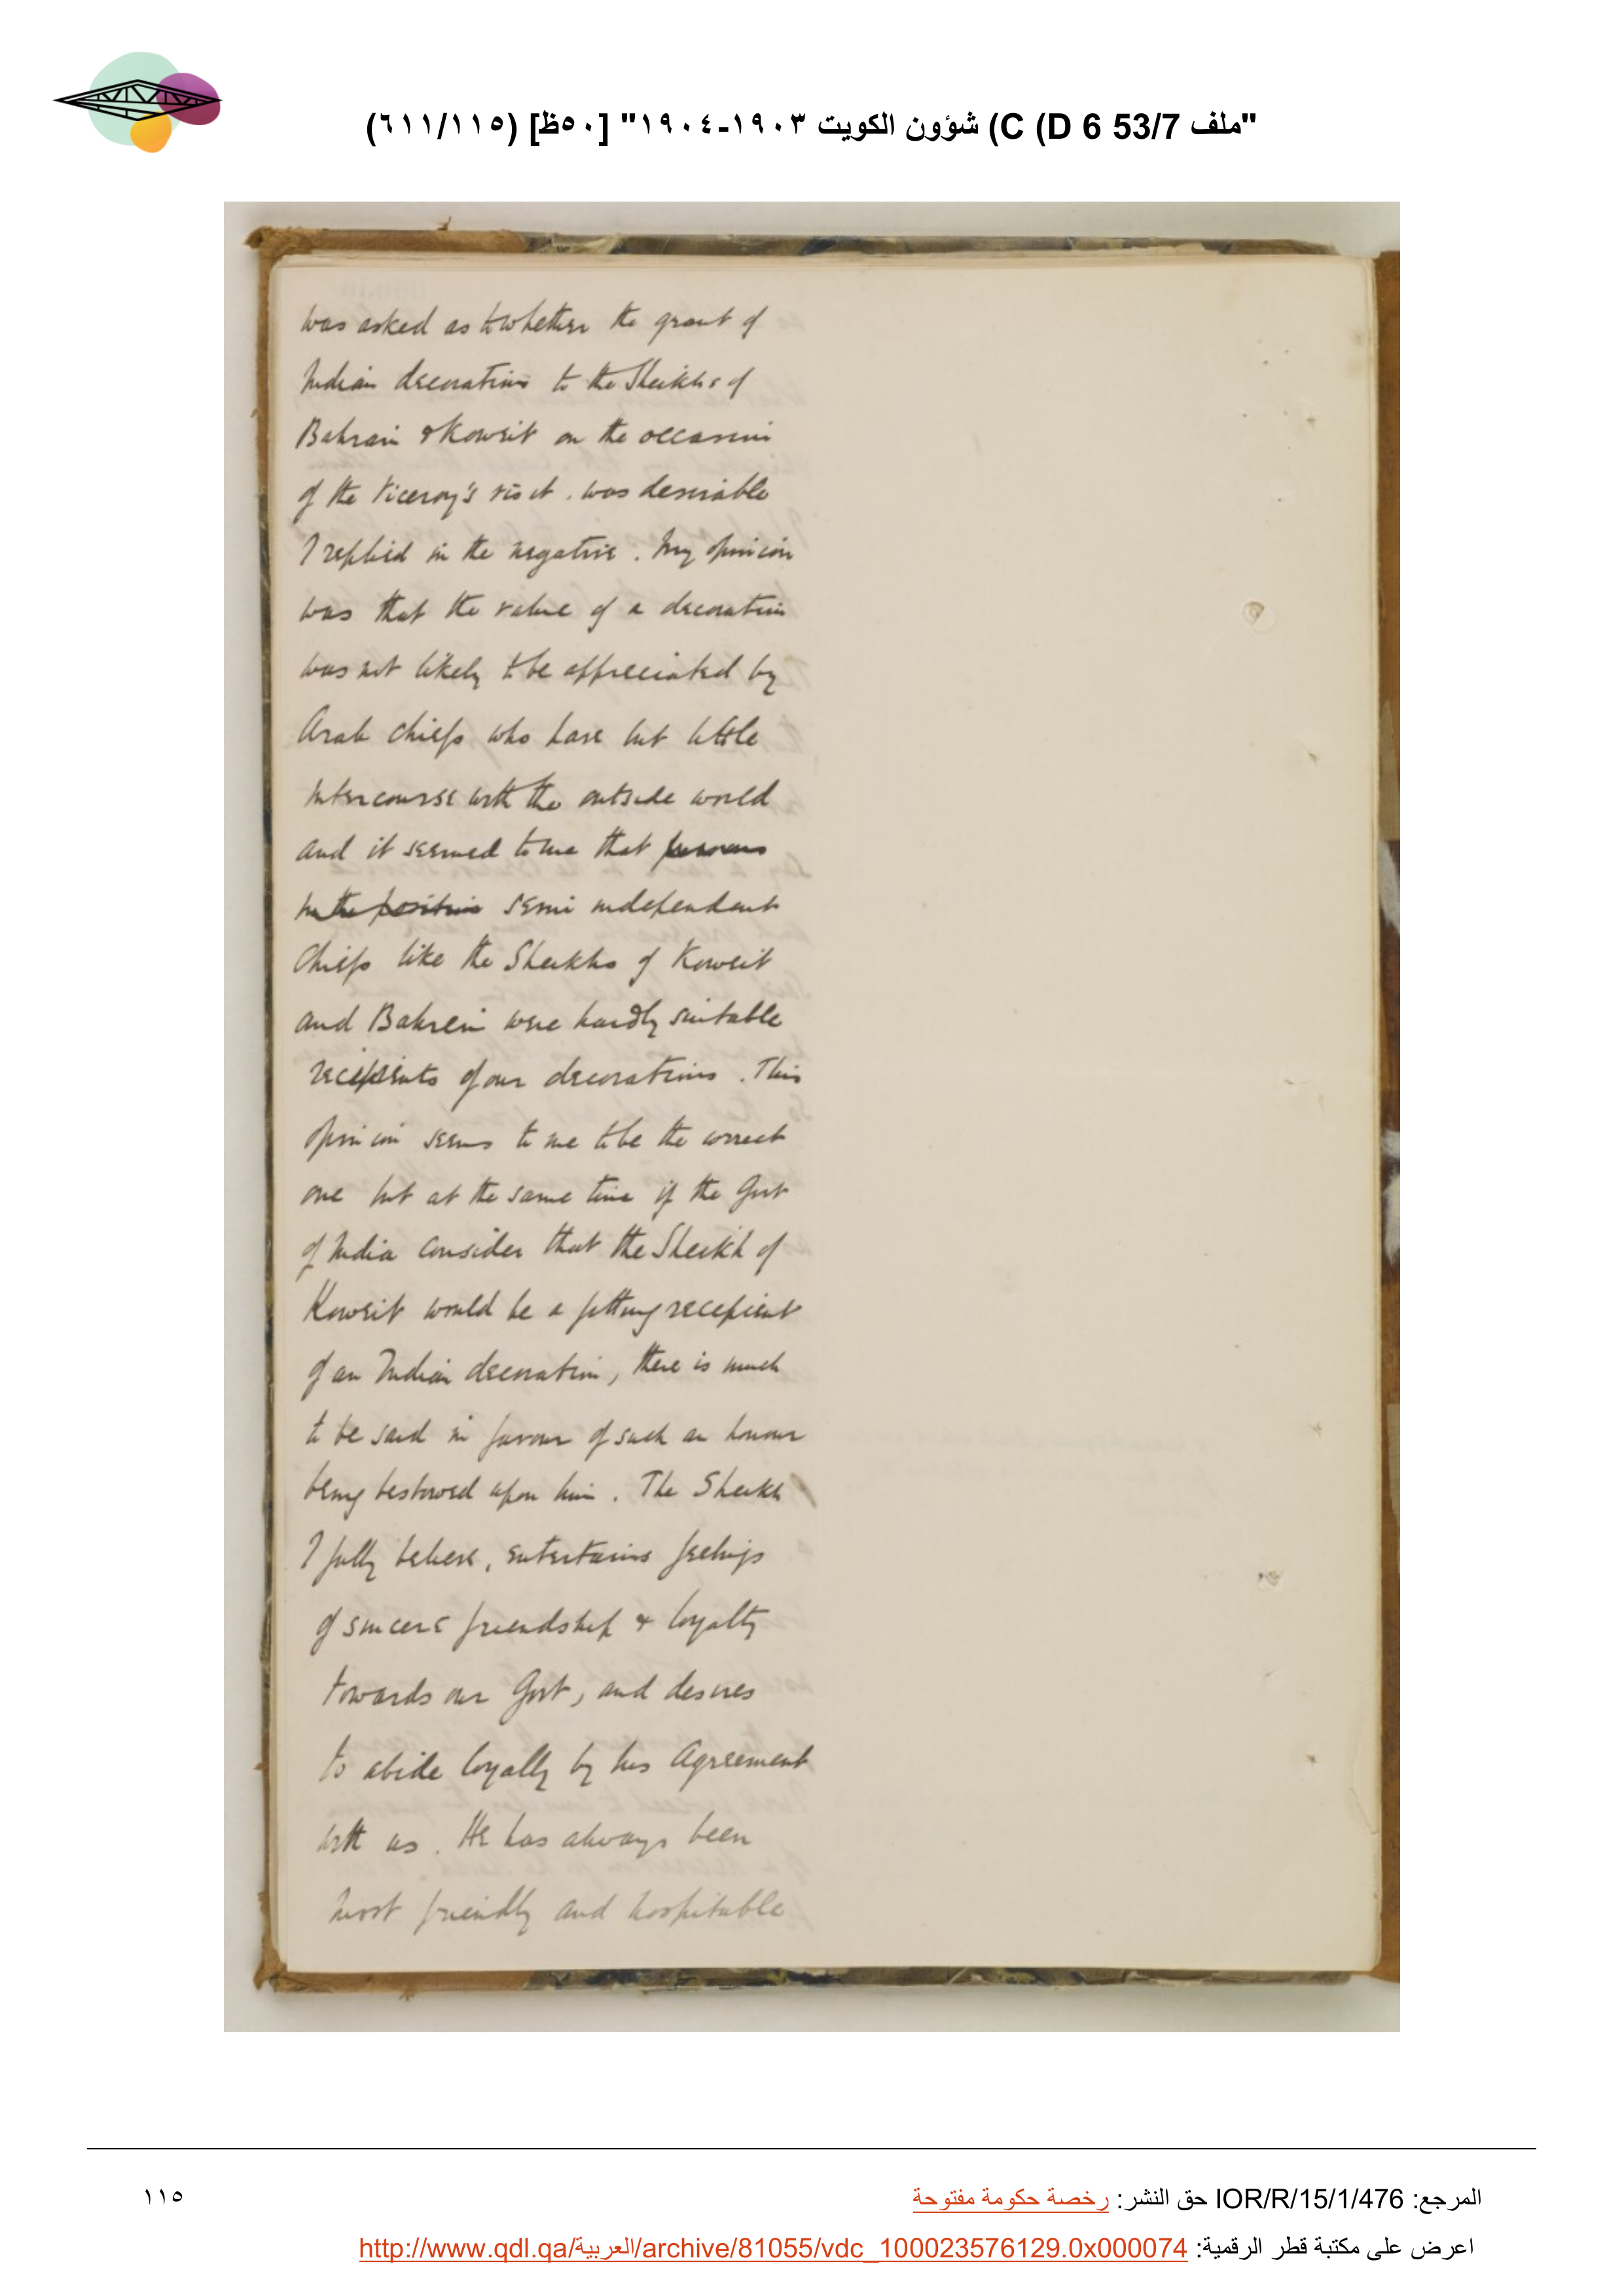 "ملف 53/7 D 6) C) شؤون الكويت ١٩٠٣-١٩٠٤" [٥٠ظ] (٦١١/١١٥)
was asked as to whether the grant of
Indian decorations to the Sheikhs of
Bahrain & Koweit on the occasion
of the Viceroy's visit . was desirable
I replied in the negative . My opinion
was that the value of a decoration
was not likely to be appreciated by
Arab chiefs who have but little
intercourse with the outside world
and it seemed to me that persons
in the position semi independent
Chiefs like the Sheikhs of Koweit
and Bahrein were hardly suitable
recipients of our decorations . This
opinion seems to me to be the correct
one but at the same time if the Govt
of India consider that the Sheikh of
Koweit would be a fitting recepient
of an Indian decoration, there is much
to be said in favour of such an honour
being bestowed upon him . The Sheikh
I fully believe, entertains feelings
of sincere friendship & loyalty
towards our Govt, and desires
to abide loyally by his Agreement
with us . He has always been
most friendly and hospitable
المرجع: IOR/R/15/1/476 حق النشر: رخصة حكومة مفتوحة
١١٥
اعرض على مكتبة قطر الرقمية: http://www.qdl.qa/العربية/archive/81055/vdc_100023576129.0x000074